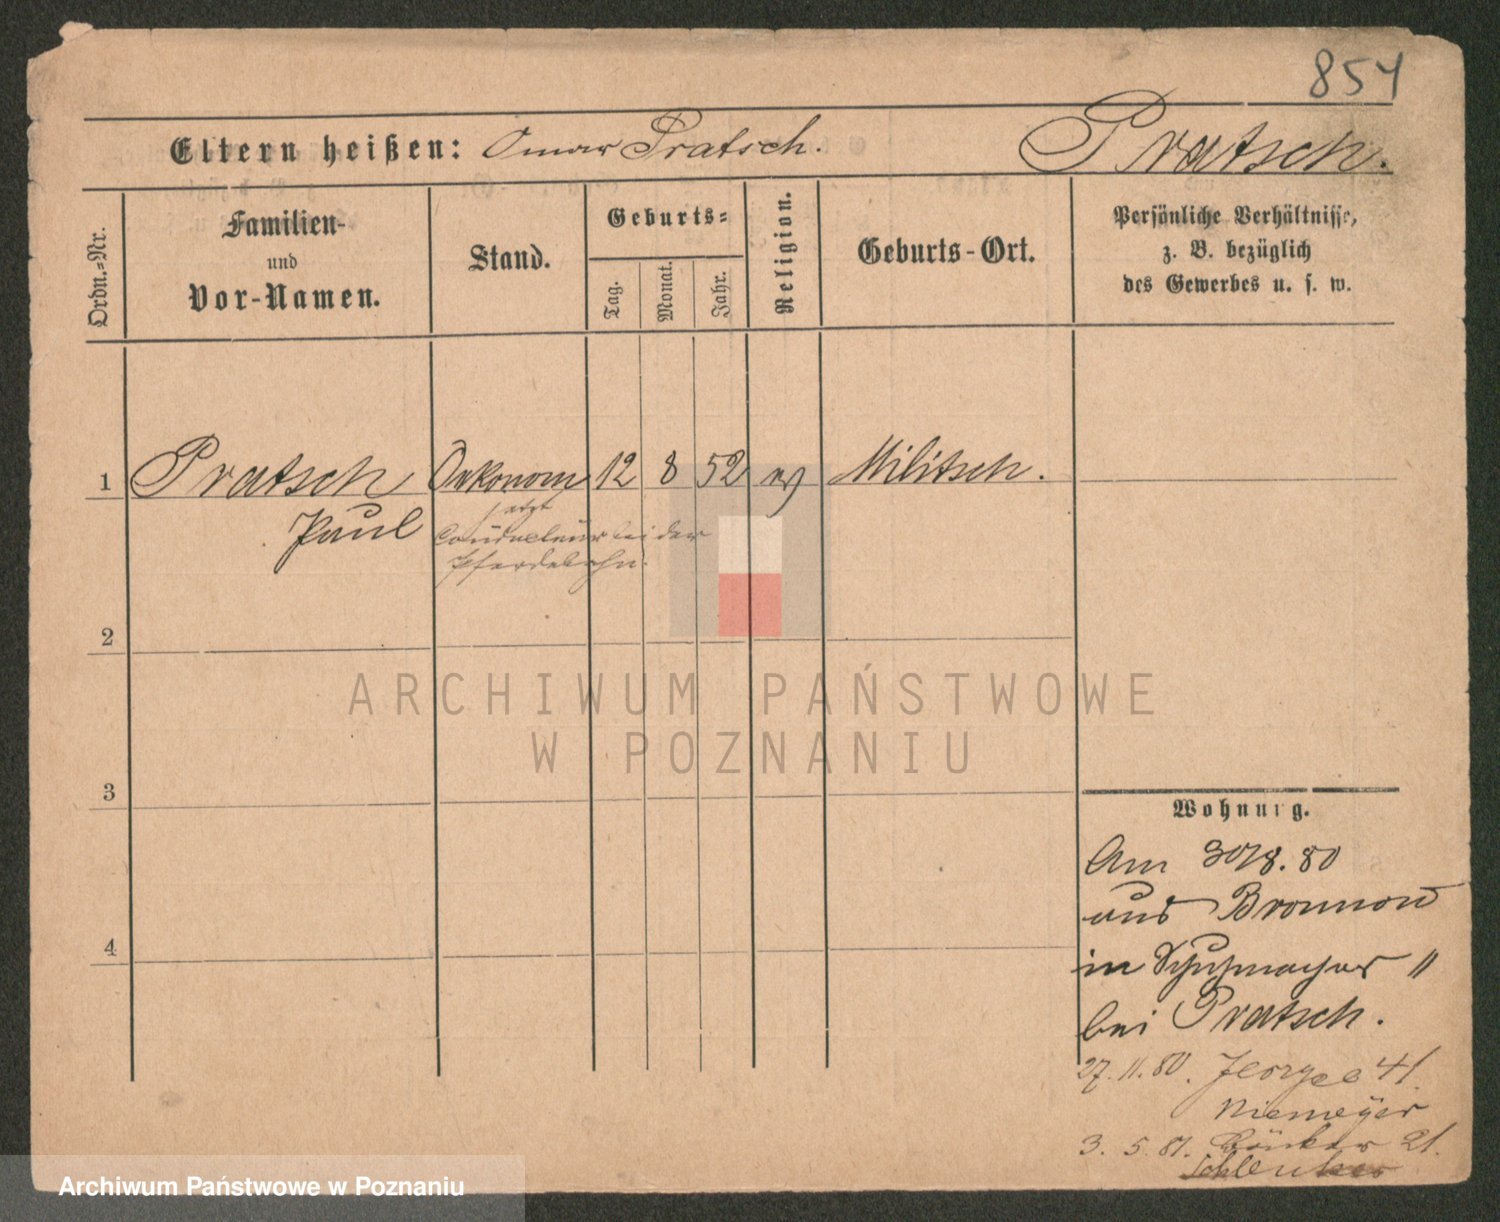 854
Eltern heißen: Omar Pratsch. Pratsch.
Ordn.=Nr.
Familien-
und
Vor-Namen.
Stand.
Geburts=
Tag.
Monat.
Jahr.
Religion.
Geburts-Ort.
Persönliche Verhältnisse,
z. B. bezüglich
des Gewerbes u. s. w.
1 Pratsch Oekonom 12 8 52 ev Militsch.
Paul
jetzt
Conducteur bei der
Pferdebahn.
2
3
4
Wohnung.
Am 30/8. 80
aus Bronnow
in Schuhmacher 11
bei Pratsch.
27. 11. 80. 41.
Niemeyer
3. 5. 81. 21.
ARCHIWUM PAŃSTWOWE
W POZNANIU
Archiwum Państwowe w Poznaniu